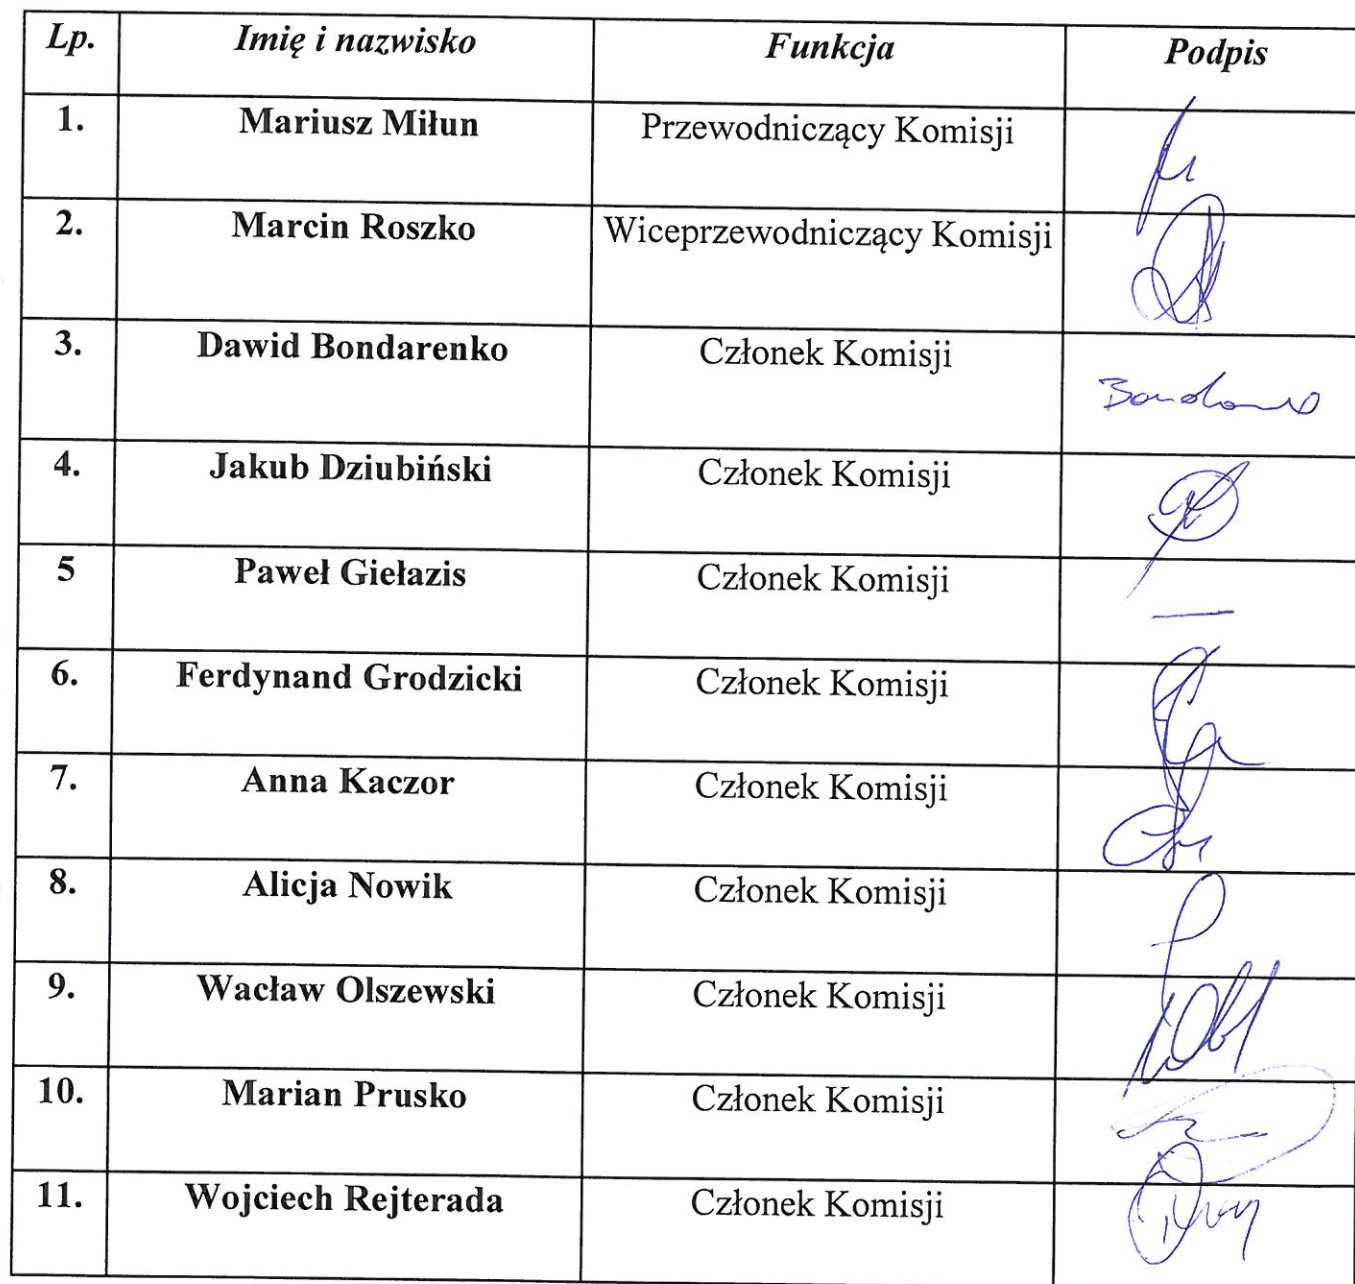 Lp. Imię i nazwisko Funkcja Podpis
1. Mariusz Miłun Przewodniczący Komisji
2. Marcin Roszko Wiceprzewodniczący Komisji
3. Dawid Bondarenko Członek Komisji
4. Jakub Dziubiński Członek Komisji
5 Paweł Giełazis Członek Komisji —
6. Ferdynand Grodzicki Członek Komisji
7. Anna Kaczor Członek Komisji
8. Alicja Nowik Członek Komisji
9. Wacław Olszewski Członek Komisji
10. Marian Prusko Członek Komisji
11. Wojciech Rejterada Członek Komisji